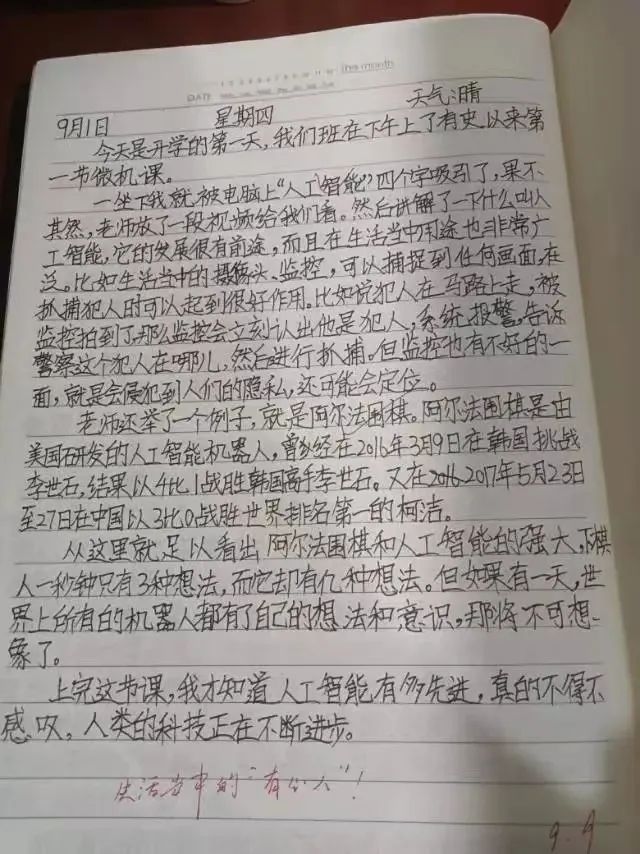 DATE
this month
9月1日 星期四 天气:晴
今天是开学的第一天,我们班在下午上了有史以来第
一节微机课。
一坐下我就被电脑上“人工智能”四个字吸引了,果不
其然,老师放了一段视频给我们看。然后讲解了一下什么叫人
工智能,它的发展很有前途,而且在生活当中用途也非常广
泛。比如生活当中的摄像头、监控,可以捕捉到任何画面,在
抓捕犯人时可以起到很好作用。比如说犯人在马路上走,被
监控拍到了那么监控会立刻认出他是犯人,系统报警,告诉
警察这个犯人在哪儿,然后进行抓捕。但监控也有不好的一
面,就是会侵犯到人们的隐私,还可能会定位。
老师还举了一个例子,就是阿尔法围棋。阿尔法围棋是由
美国研发的人工智能机器人,曾经在2016年3月9日在韩国挑战
李世石,结果以4比1战胜韩国高手李世石。又在2016-2017年5月23日
至27日在中国以3比0战胜世界排名第一的柯洁。
从这里就足以看出阿尔法围棋和人工智能的强大,下棋
人一秒钟只有3种想法,而它却有亿种想法。但如果有一天,世
界上所有的机器人都有了自己的想法和意识,那将不可想
象了。
上完这节课,我才知道人工智能有多先进,真的不得不
感叹,人类的科技正在不断进步。
生活当中的“有心人”!
9.9